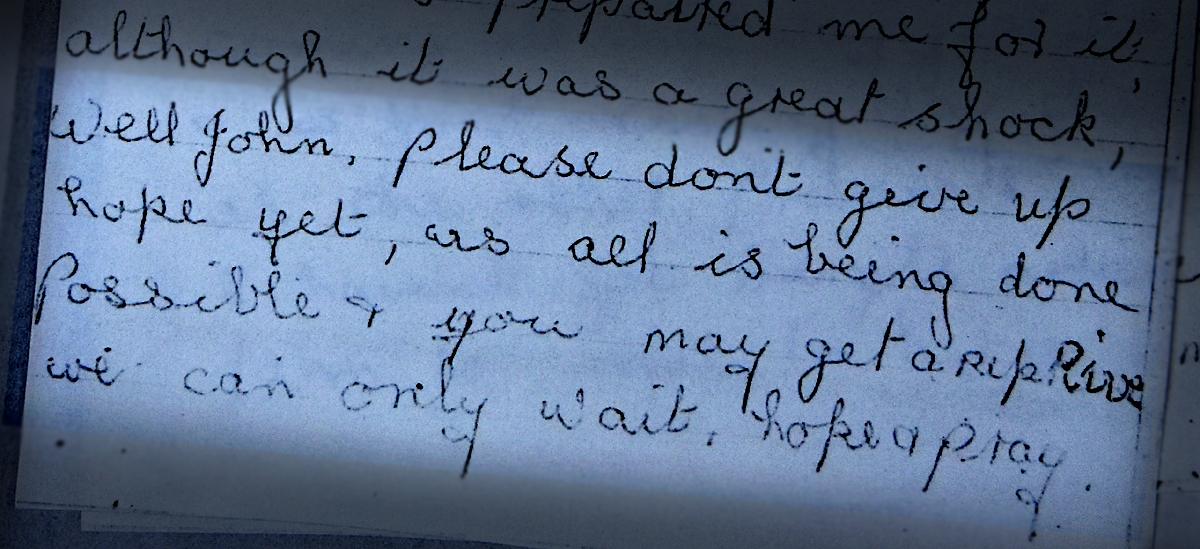 prepatred me for it,
although it was a great shock,
Well John, please dont give up
hope yet, as all is being done
Possible & you may get a repRive
we can only wait, hope & pray.